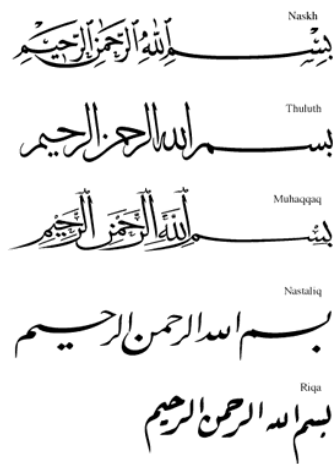 Naskh
بِسْمِ اللهِ الرَّحْمٰنِ الرَّحِيْمِ
Thuluth
بسم الله الرحمن الرحيم
Muhaqqaq
بِسْمِ اللَّهِ الرَّحْمٰنِ الرَّحِيْمِ
Nastaliq
بسم الله الرحمن الرحیم
Riqa
بسم الله الرحمن الرحيم